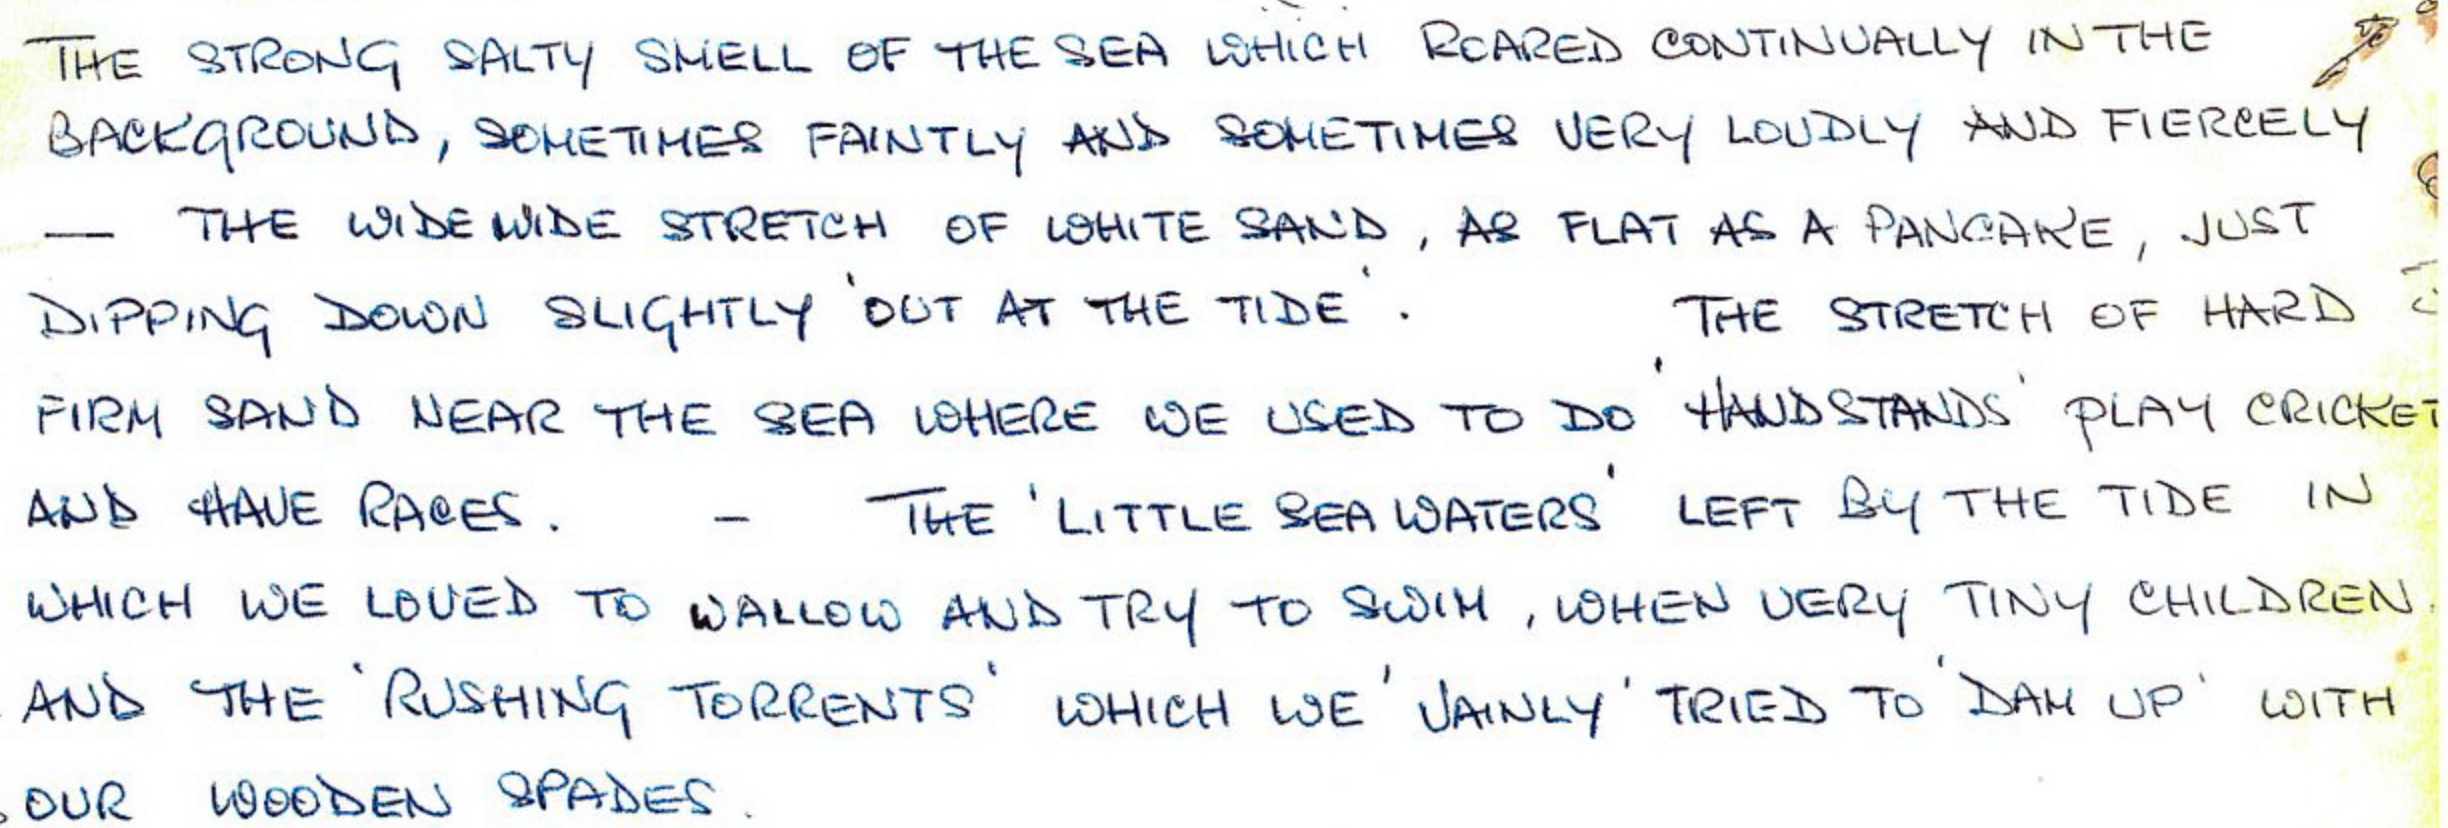 THE STRONG SALTY SMELL OF THE SEA WHICH ROARED CONTINUALLY IN THE
BACKGROUND, SOMETIMES FAINTLY AND SOMETIMES VERY LOUDLY AND FIERCELY
— THE WIDE WIDE STRETCH OF WHITE SAND, AS FLAT AS A PANCAKE, JUST
DIPPING DOWN SLIGHTLY 'OUT AT THE TIDE'. THE STRETCH OF HARD
FIRM SAND NEAR THE SEA WHERE WE USED TO DO 'HANDSTANDS' PLAY CRICKET
AND HAVE RACES. – THE 'LITTLE SEA WATERS' LEFT BY THE TIDE IN
WHICH WE LOVED TO WALLOW AND TRY TO SWIM, WHEN VERY TINY CHILDREN.
AND THE 'RUSHING TORRENTS' WHICH WE 'VAINLY' TRIED TO 'DAM UP' WITH
OUR WOODEN SPADES.